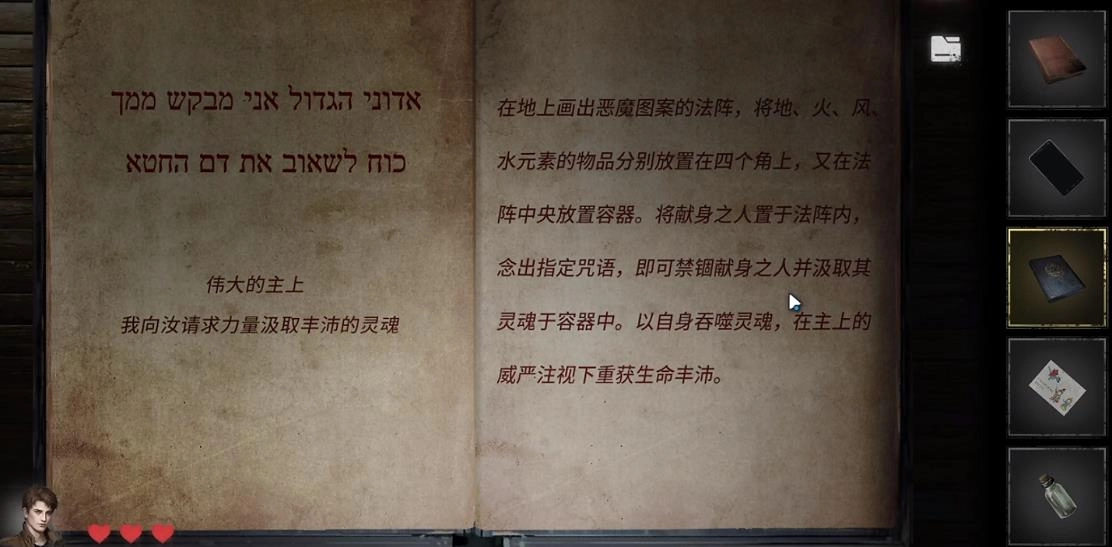 אדוני הגדול אני מבקש ממך
כוח לשאוב את דם החטא
伟大的主上
我向汝请求力量汲取丰沛的灵魂
在地上画出恶魔图案的法阵，将地、火、风、
水元素的物品分别放置在四个角上，又在法
阵中央放置容器。将献身之人置于法阵内，
念出指定咒语，即可禁锢献身之人并汲取其
灵魂于容器中。以自身吞噬灵魂，在主上的
威严注视下重获生命丰沛。